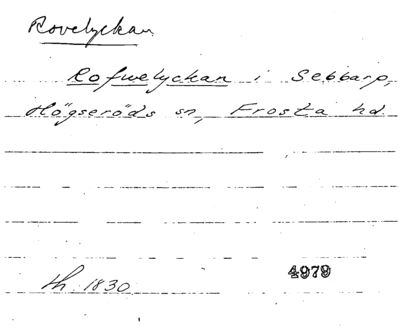 Rovelyckan
Rofwelyckan i Sebbarp,
Högseröds sn, Frosta hd
th. 1830
4979